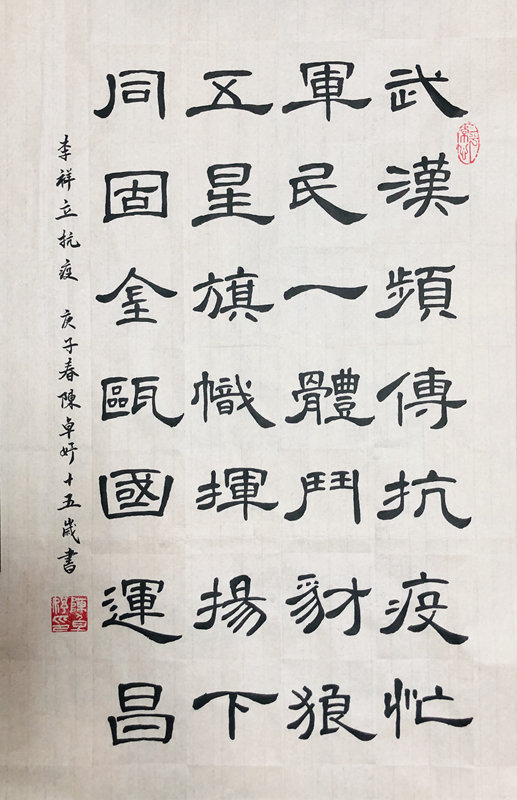 武漢頻傳抗疫忙
軍民一體鬥豺狼
五星旗幟揮揚下
同固金甌國運昌
李祥立抗疫 庚子春陳卓妤十五歲書